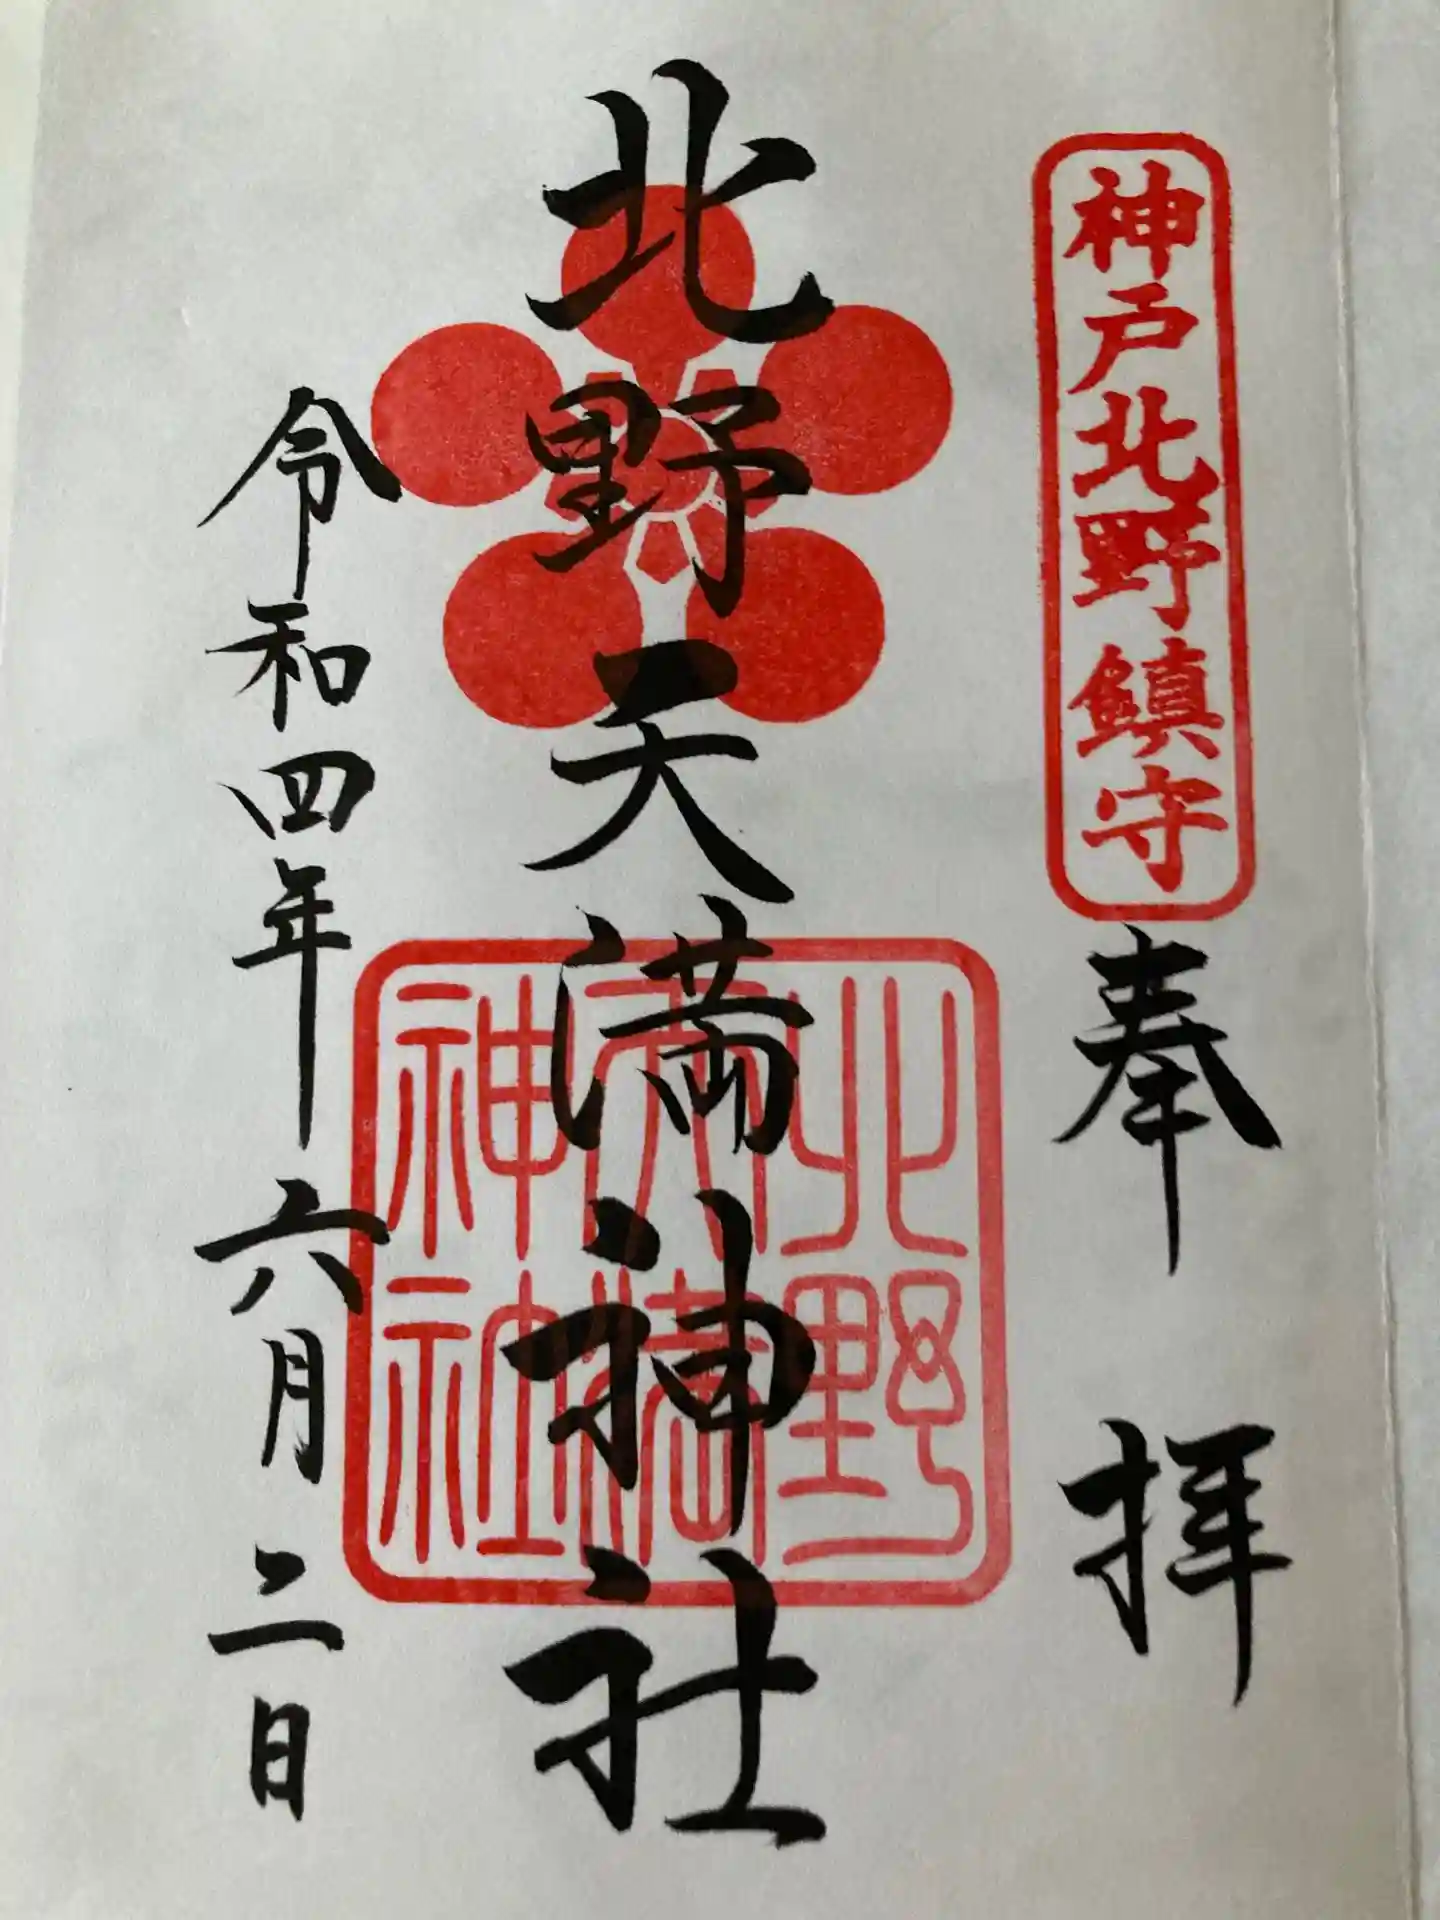 神戸北野鎮守
奉拝
北野天満神社
北野
天満
神社
令和四年六月二日